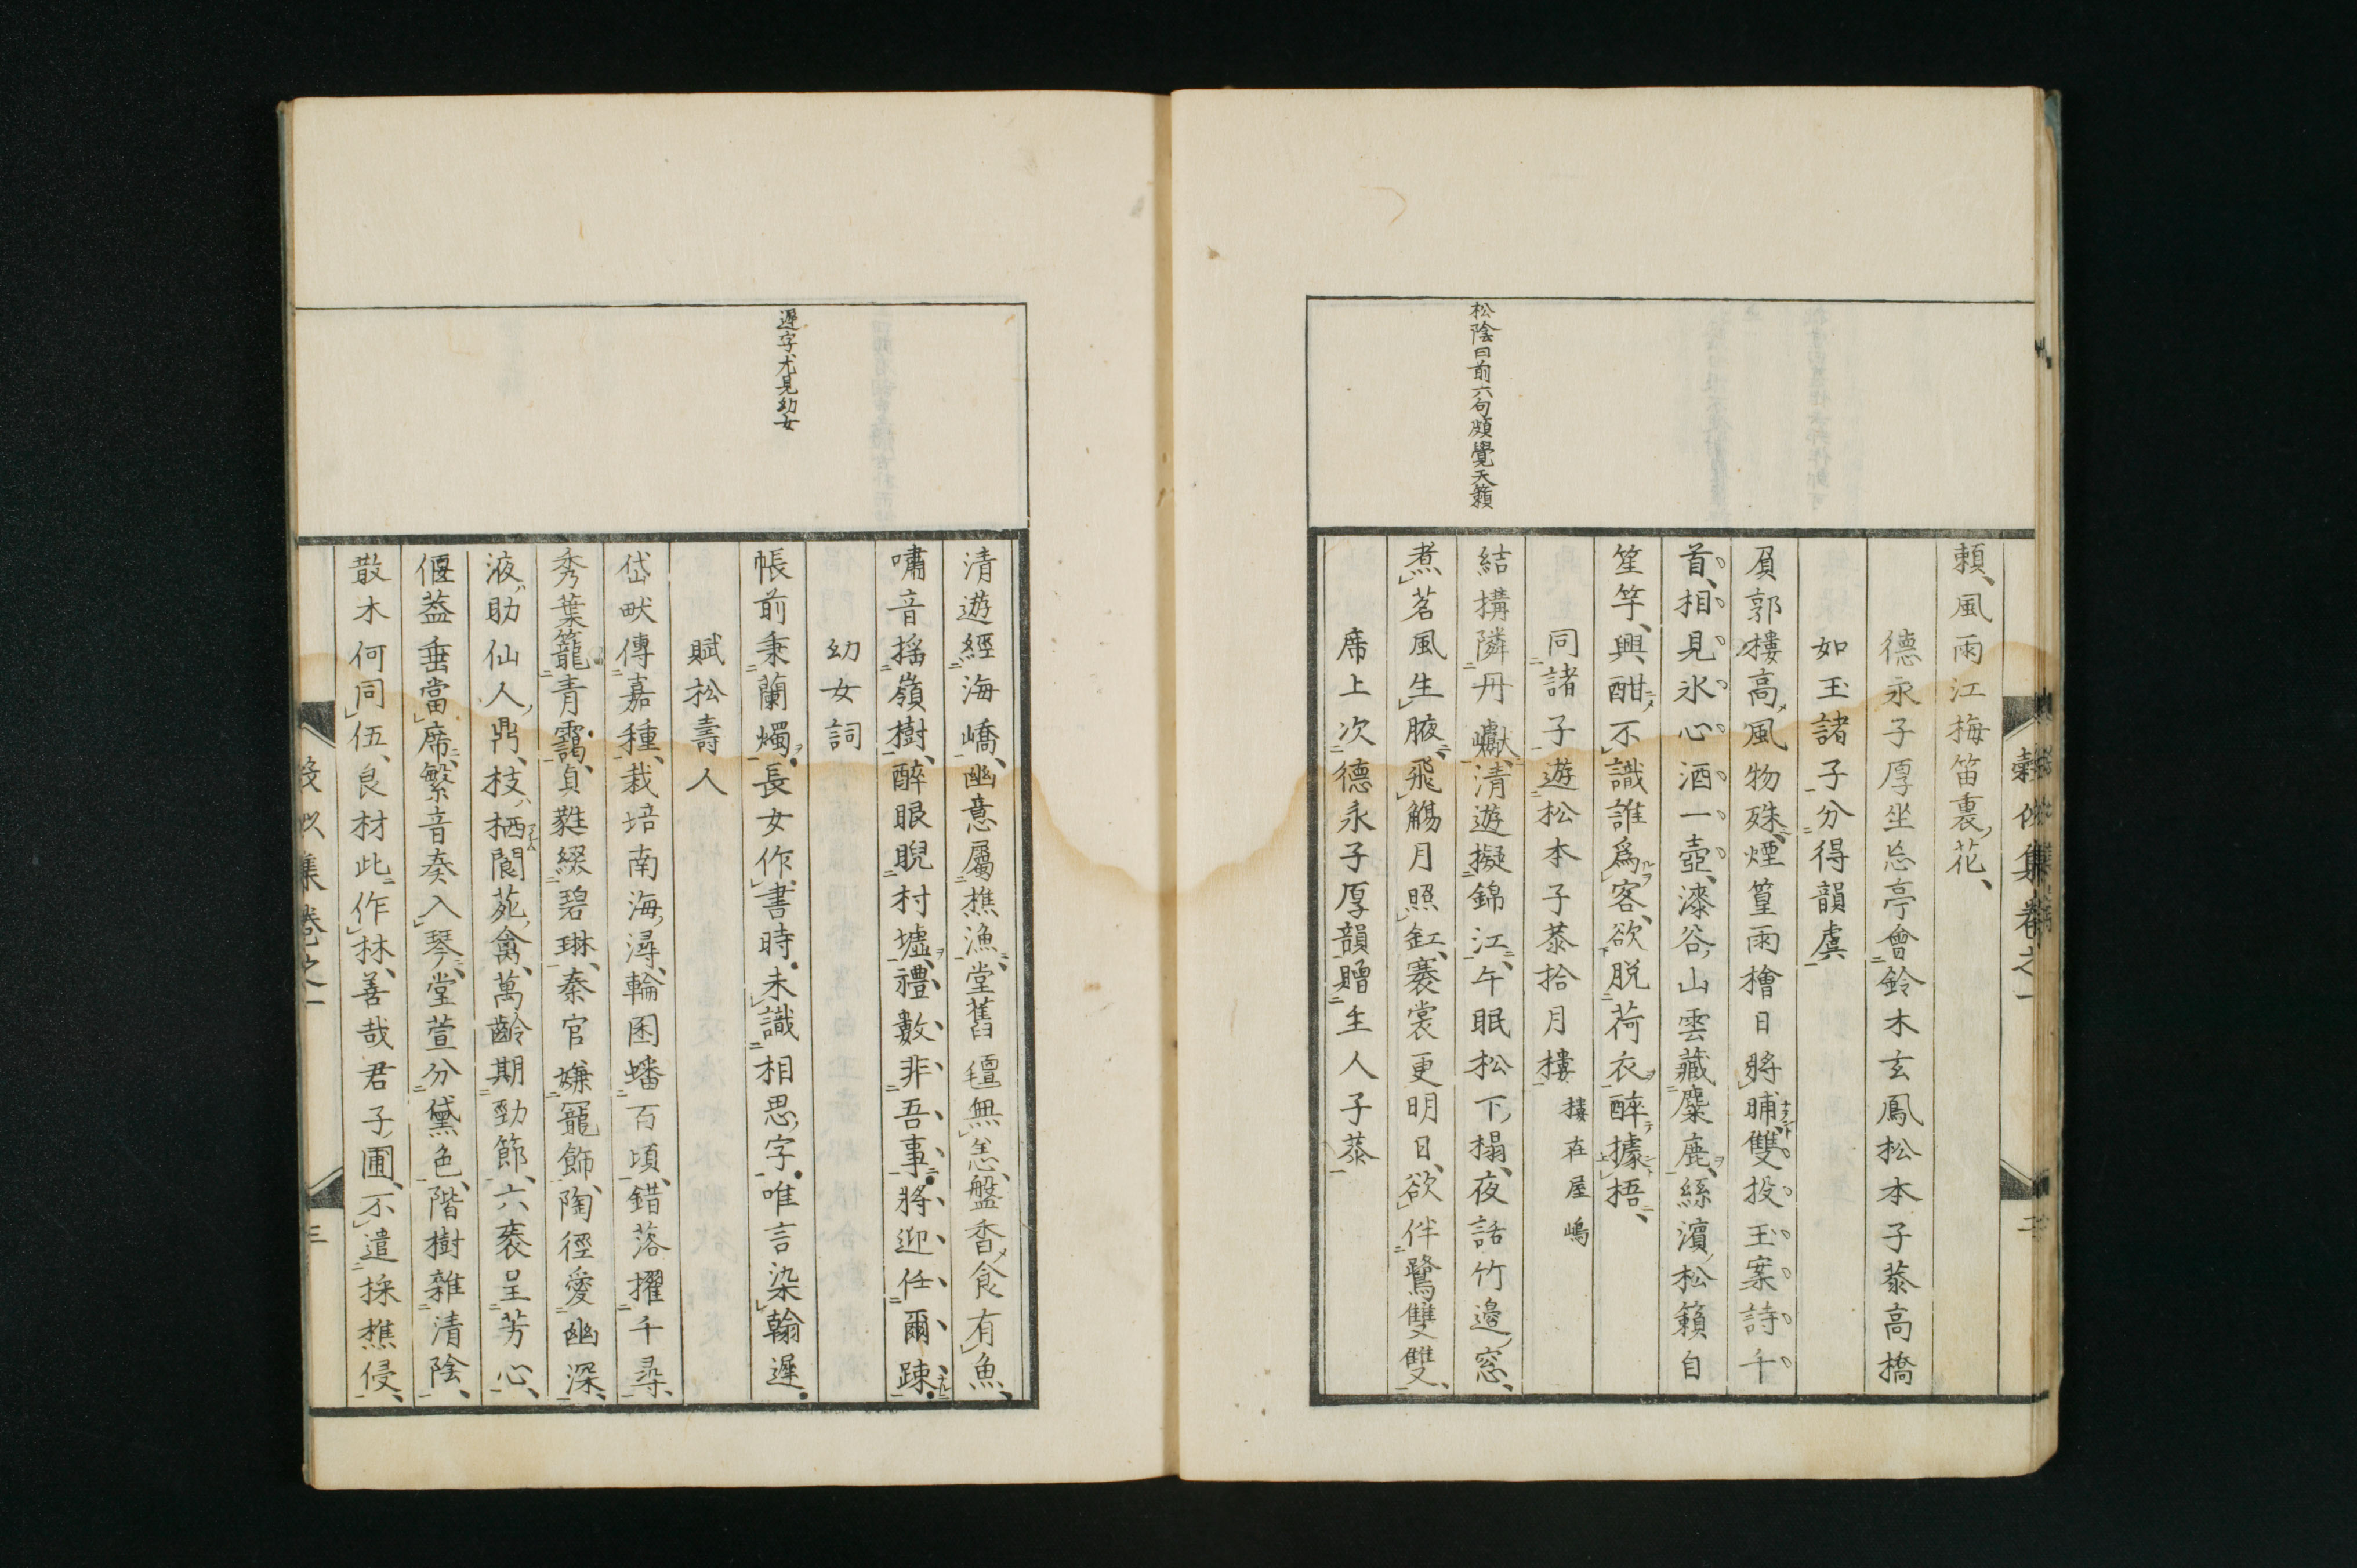 頼風雨江梅笛裏花
德永子厚坐忘亭會鈴木玄鳳松本子恭高橋
如玉諸子分得韻虞
負郭樓高風物殊煙篁雨檜日將晡雙投玉案詩千
首相見氷心酒一壺漆谷山雲藏麋鹿絲濱松籟自
笙竽興酣不識誰爲客欲脱荷衣醉據梧
同諸子遊松本子恭拾月樓 樓在屋嶋
松陰曰前六句頗覺天籟
結構隣丹巘清遊擬錦江午眠松下榻夜話竹邉窓
煮茗風生腋飛觴月照缸褰裳更明日欲伴鷺雙雙
席上次德永子厚韻贈主人子恭
清遊經海嶠幽意屬樵漁堂舊氊無恙盤香食有魚
嘯音揺嶺樹醉眼睨村墟禮數非吾事將迎任爾踈
幼女詞
遲字尤見幼女
帳前秉蘭燭長女作書時未識相思字唯言染翰遲
賦松壽人
岱畎傳嘉種栽培南海潯輪囷蟠百頃錯落擢千尋
秀葉籠青靄貞蕤綴碧琳秦官嫌寵飾陶徑愛幽深
液助仙人鼎枝栖閬苑禽萬齡期勁節六袠呈芳心
偃葢垂當席繁音奏入琴堂萱分黛色階樹雜清陰
散木何同伍良材此作林善哉君子圃不遣採樵侵